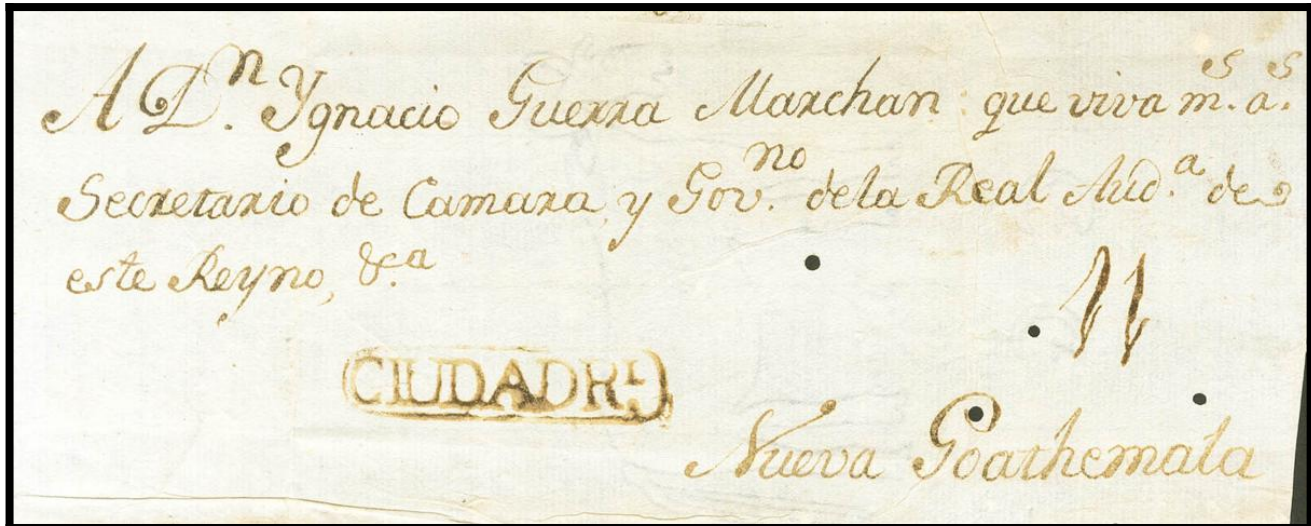 A Dn. Ygnacio Guerra Marchan que viva ms. as.
Secretario de Camara, y Govno. dela Real Auda. de
este Reyno, &a.
11
CIUDADRL.
Nueva Goathemala